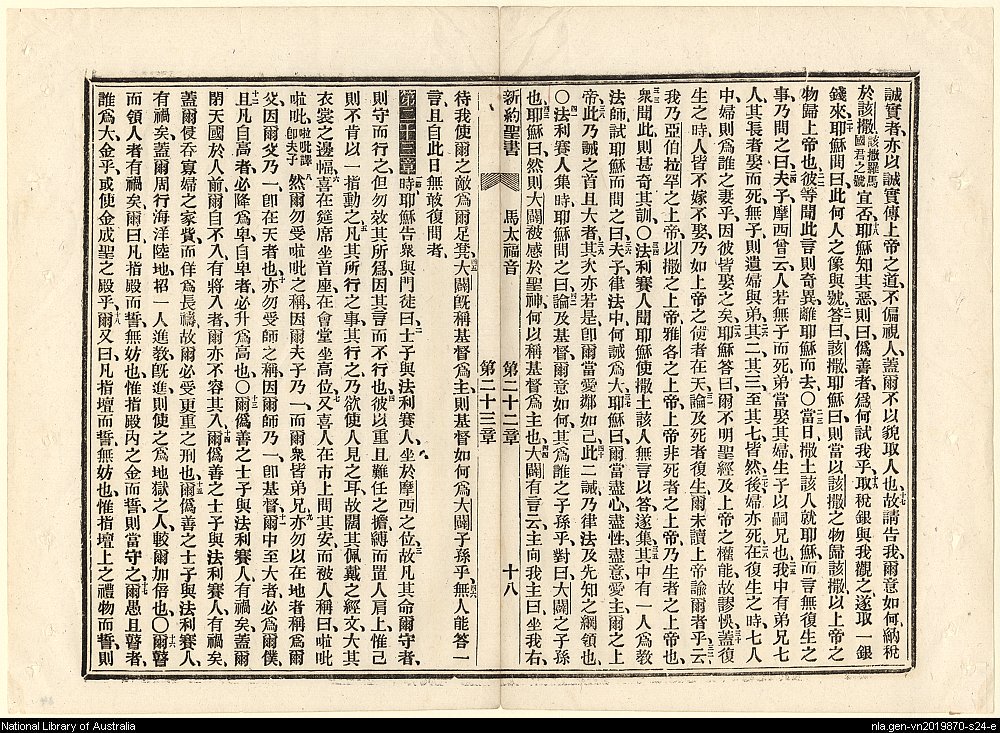 誠實者、亦以誠實傳上帝之道、不偏視人、蓋爾不以貌取人也、十七故請告我、爾意如何、納稅
於該撒、該撒羅馬國君之號宜否、十八耶穌知其惡、則曰、僞善者、爲何試我乎、十九取稅銀與我觀之、遂取一銀
錢來、二十耶穌問曰、此何人之像與號、答曰、該撒、二一耶穌曰、則當以該撒之物歸該撒、以上帝之
物歸上帝也、二二彼等聞此言、則奇異、離耶穌而去、〇二三當日、撒土該人就耶穌、而言無復生之
事、乃問之曰、二四夫子、摩西曾云、人若無子而死、弟當娶其婦、生子以嗣兄也、二五我中有弟兄七
人、其長者娶而死、無子、則遺婦與弟、二六其二其三、至其七皆然、二七後婦亦死、二八在復生之時、七人
中、婦則爲誰之妻乎、因彼皆娶之矣、二九耶穌答曰、爾不明聖經、及上帝之權能、故謬悞、三十蓋復
生之時、人皆不嫁不娶、乃如上帝之使者在天、三一論及死者復生、爾未讀上帝諭爾者乎、云、三二
我乃亞伯拉罕之上帝、以撒之上帝、雅各之上帝、上帝非死者之上帝、乃生者之上帝也、
三三衆聞此、則甚奇其訓、〇三四法利賽人聞耶穌使撒土該人無言以答、遂集、三五其中有一人爲教
法師、試耶穌而問之曰、三六夫子、律法中何誡爲大、三七耶穌曰、爾當盡心、盡性、盡意、愛主爾之上
帝、三八此乃誡之首且大者、三九其次亦若是、卽爾當愛鄰如己、四十此二誡、乃律法及先知之綱領也、
〇四一法利賽人集時、耶穌問之曰、四二論及基督爾意如何、其爲誰之子孫乎、對曰、大闢之子孫
也、四三耶穌曰、然則大闢被感於聖神、何以稱基督爲主也、四四大闢有言云、主向我主曰、坐我右、
新約聖書　馬太福音　第二十二章　第二十三章　十八
待我使爾之敵爲爾足凳、四五大闢旣稱基督爲主、則基督如何爲大闢子孫乎、四六無人能答一
言、且自此日無敢復問者、
第二十三章　時耶穌告衆與門徒曰、二士子與法利賽人、坐於摩西之位、三故凡其命爾守者、
則守而行之、但勿效其所爲、因其言而不行也、四彼以重且難任之擔、縛而置人肩上、惟己
則不肯以一指動之、五凡其所行之事、其行之乃欲使人見之耳、故闊其佩戴之經文、大其
衣裳之邊幅、六喜在筵席坐首座、在會堂坐高位、七又喜人在市上問其安、而被人稱曰、啦吡
啦吡、啦吡譯卽夫子八然爾勿受啦吡之稱、因爾夫子乃一、而爾衆皆弟兄、九亦勿以在地者稱爲爾
父、因爾父乃一、卽在天者也、十亦勿受師之稱、因爾師乃一、卽基督、十一爾中至大者、必爲爾僕、
十二且凡自高者、必降爲卑、自卑者、必升爲高也、〇十三爾僞善之士子與法利賽人有禍矣、蓋爾
閉天國於人前、爾自不入、有將入者、爾亦不容其入、十四爾僞善之士子與法利賽人有禍矣、
蓋爾侵吞寡婦之家貲、而佯爲長禱、故爾必受更重之刑也、十五爾僞善之士子與法利賽人、
有禍矣、蓋爾周行海洋陸地、招一人進教、旣進、則使之爲地獄之人、較爾加倍也、〇十六爾瞽
而領人者有禍矣、爾曰、凡指殿而誓無妨也、惟指殿內之金而誓、則當守之、十七爾愚且瞽者、
誰爲大、金乎、或使金成聖之殿乎、十八爾又曰、凡指壇而誓、無妨也、惟指壇上之禮物而誓、則
National Library of Australia
nla.gen-vn2019870-s24-e